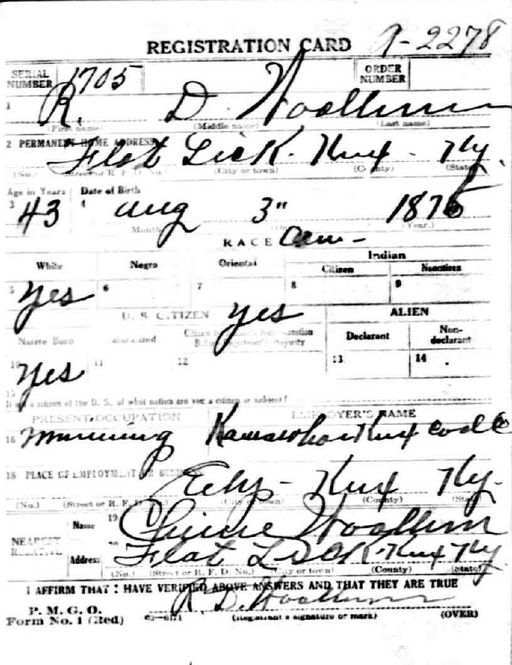 REGISTRATION CARD A-2278
SERIAL NUMBER 1705 ORDER NUMBER
1 R. D. Woollum
(First name) (Middle name) (Last name)
2 PERMANENT HOME ADDRESS
Flat Lick. Knx - Ky.
(No.) (Street or R. F. D. No.) (City or town) (County) (State)
Age in Years Date of Birth
3 43 4 Aug 3" 1875
(Month) (Year.)
RACE
White Negro Oriental Indian
Citizen Noncitizen
5 yes 6 7 8 9
U. S. CITIZEN yes ALIEN
Native Born Naturalized Declarant Non-declarant
10 yes 11 12 13 14
15
If not a citizen of the U. S. of what nation are you a citizen or subject?
PRESENT OCCUPATION EMPLOYER'S NAME
16 Minning Knx Coal Co
18 PLACE OF EMPLOYMENT OR BUSINESS
Ely - Knx Ky.
(No.) (Street or R. F. D. No.) (City or town) (County) (State)
NEAREST RELATIVE Name 19 Woollum
Address 20 Flat Lick Knx Ky
(No.) (Street or R. F. D. No.) (City or town) (County) (State)
I AFFIRM THAT I HAVE VERIFIED ABOVE ANSWERS AND THAT THEY ARE TRUE
P. M. G. O. R. D. Woollum
Form No. 1 (Red) (Registrant's signature or mark) (OVER)